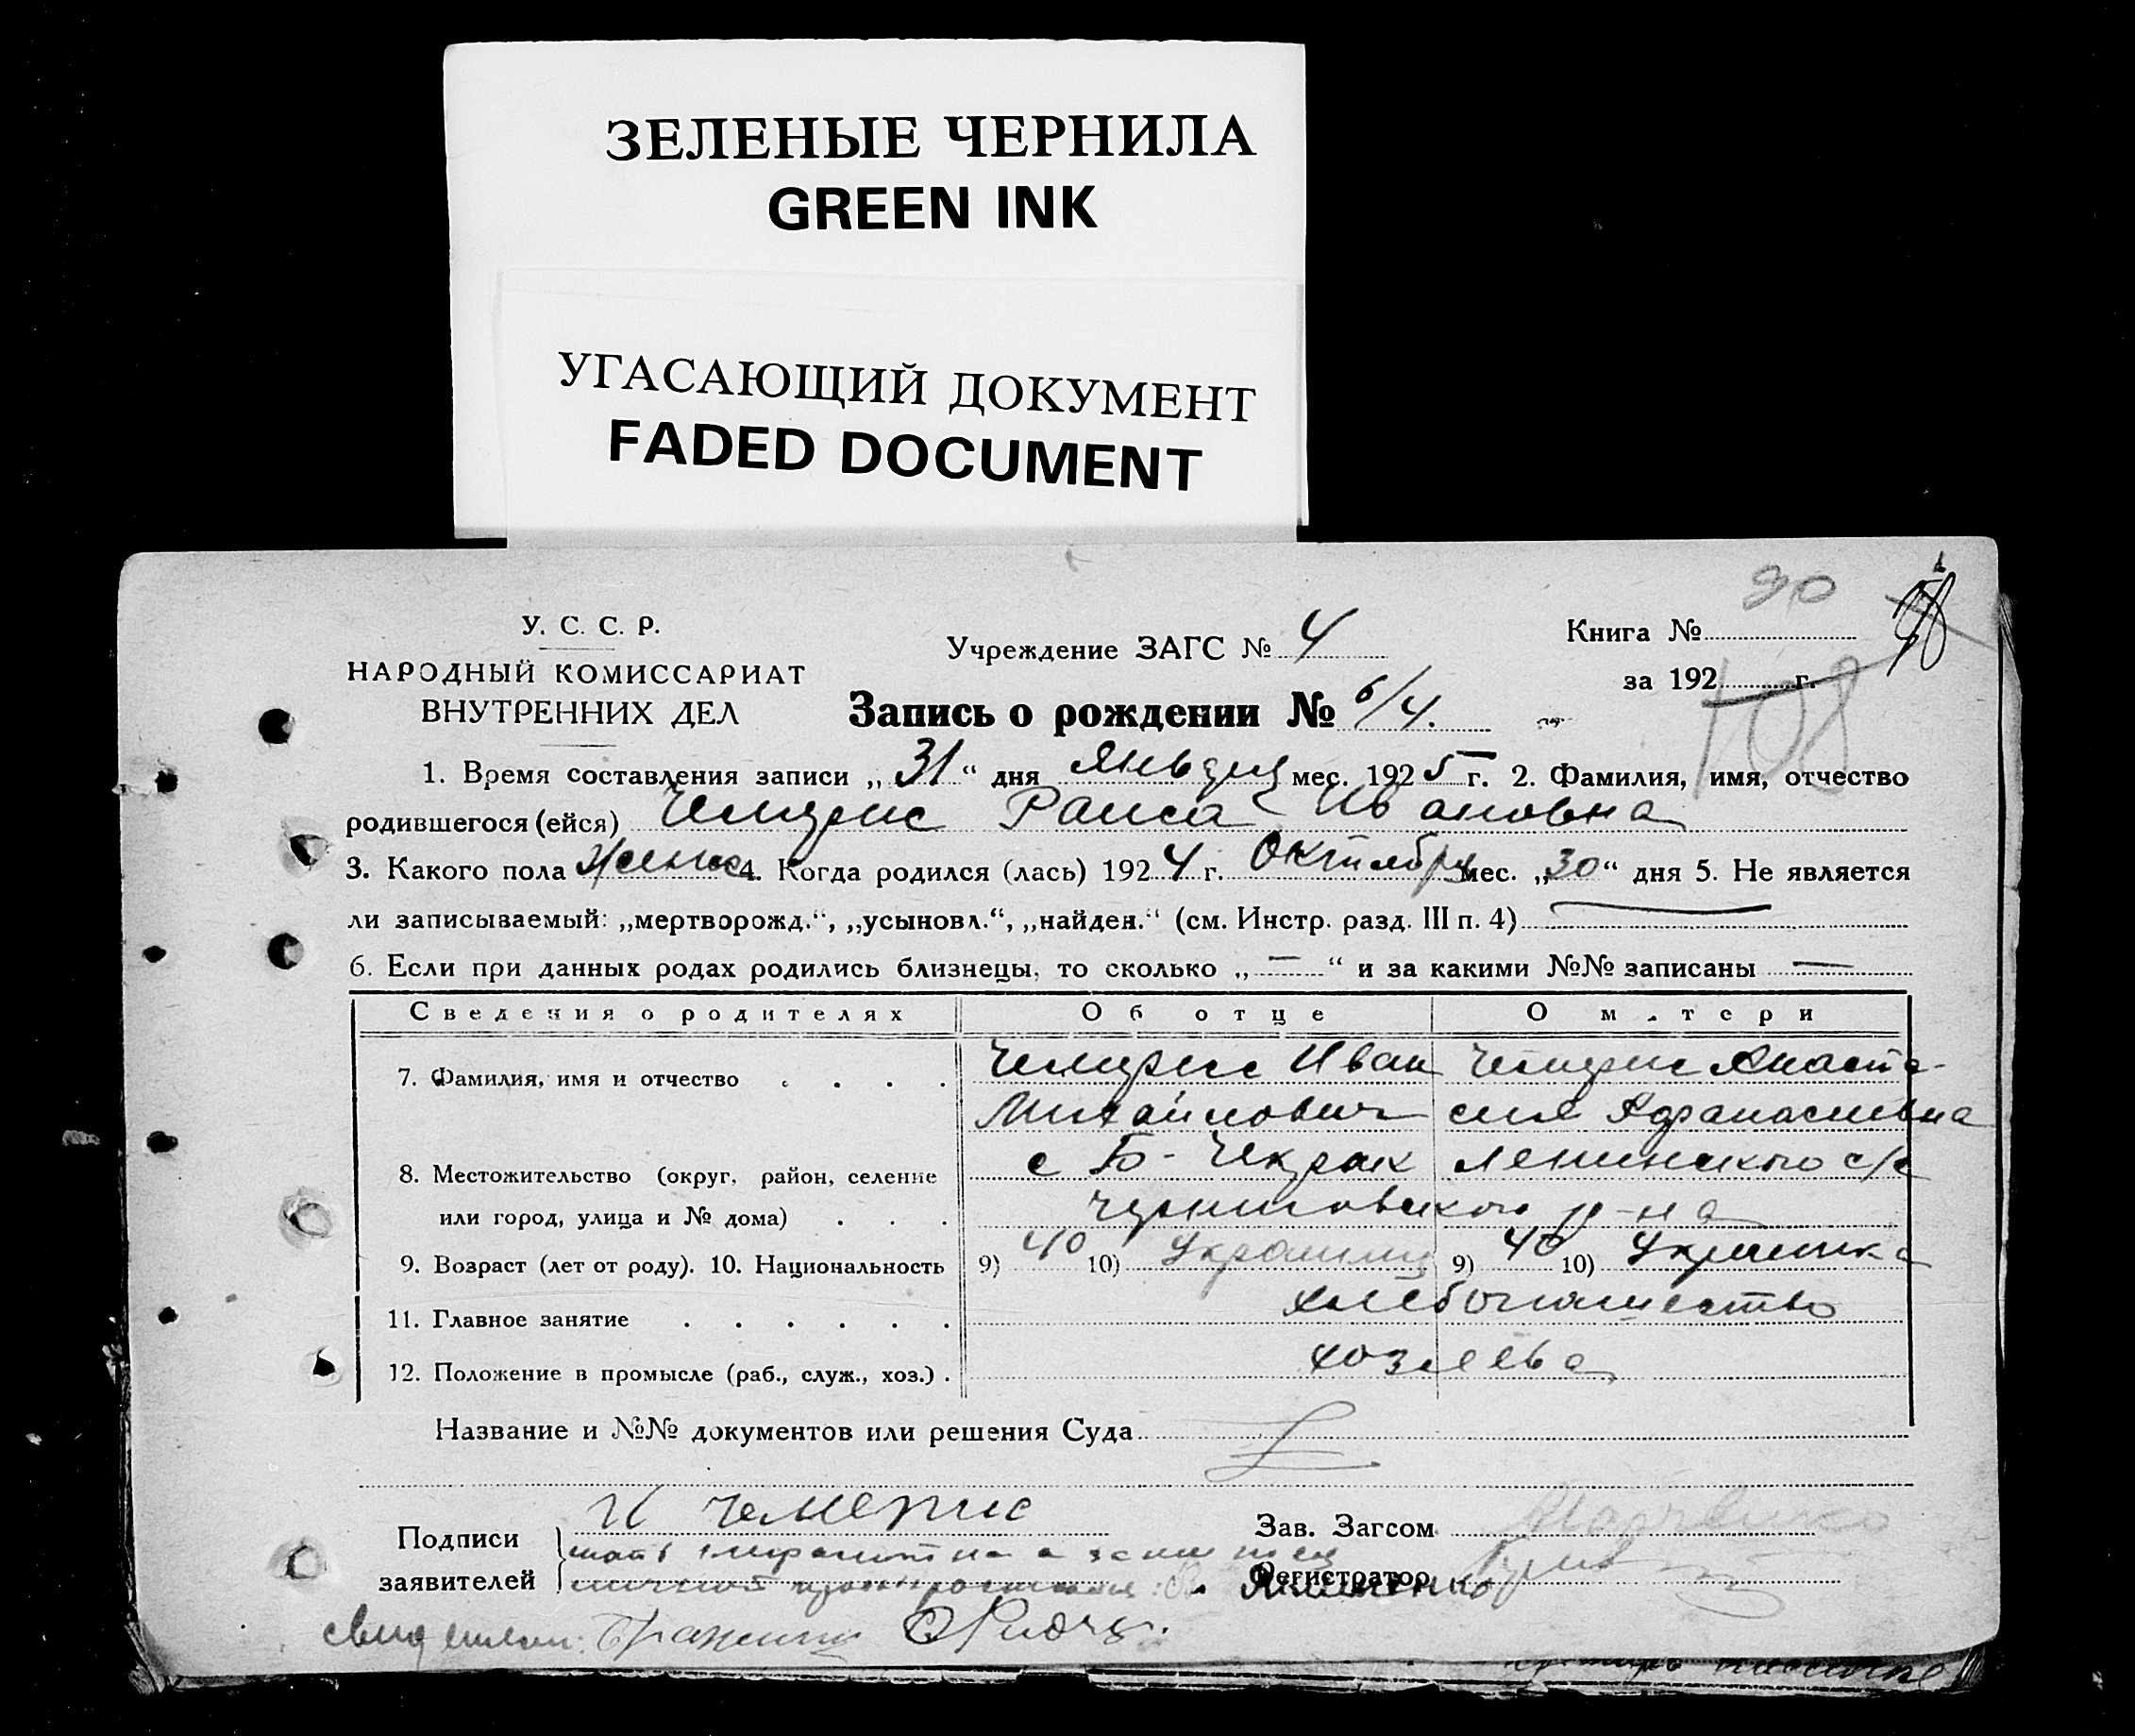 ЗЕЛЕНЫЕ ЧЕРНИЛА
GREEN INK
УГАСАЮЩИЙ ДОКУМЕНТ
FADED DOCUMENT
90
У. С. С. Р.
НАРОДНЫЙ КОМИССАРИАТ
ВНУТРЕННИХ ДЕЛ
Учреждение ЗАГС № 4
Книга №
за 192 г.
108
Запись о рождении № 6/4.
1. Время составления записи „31“ дня Января мес. 1925 г. 2. Фамилия, имя, отчество
родившегося (ейся) Чемерис Раиса Ивановна
3. Какого пола женс 4. Когда родился (лась) 1924 г. Октября мес. „30“ дня 5. Не является
ли записываемый: „мертворожд.“, „усыновл.“, „найден.“ (см. Инстр. разд. III п. 4) —
6. Если при данных родах родились близнецы, то сколько „—“ и за какими №№ записаны —
Сведения о родителях Об отце О матери
7. Фамилия, имя и отчество . . . . Чемерис Иван Чемерис Анаста-
Михайлович сия Афанасиевна
8. Местожительство (округ, район, селение с Б-Чекрак Ленинского с/с
или город, улица и № дома) . . . Черниговского р-на
9. Возраст (лет от роду). 10. Национальность 9) 40 10) Украинец 9) 40 10) Украинка
11. Главное занятие . . . . . . хлебопашество
12. Положение в промысле (раб., служ., хоз.) . хозяева
Название и №№ документов или решения Суда
Подписи И Чемерис
Зав. Загсом
мать неграмотная а за нее
заявителей Регистратор
свидетели: